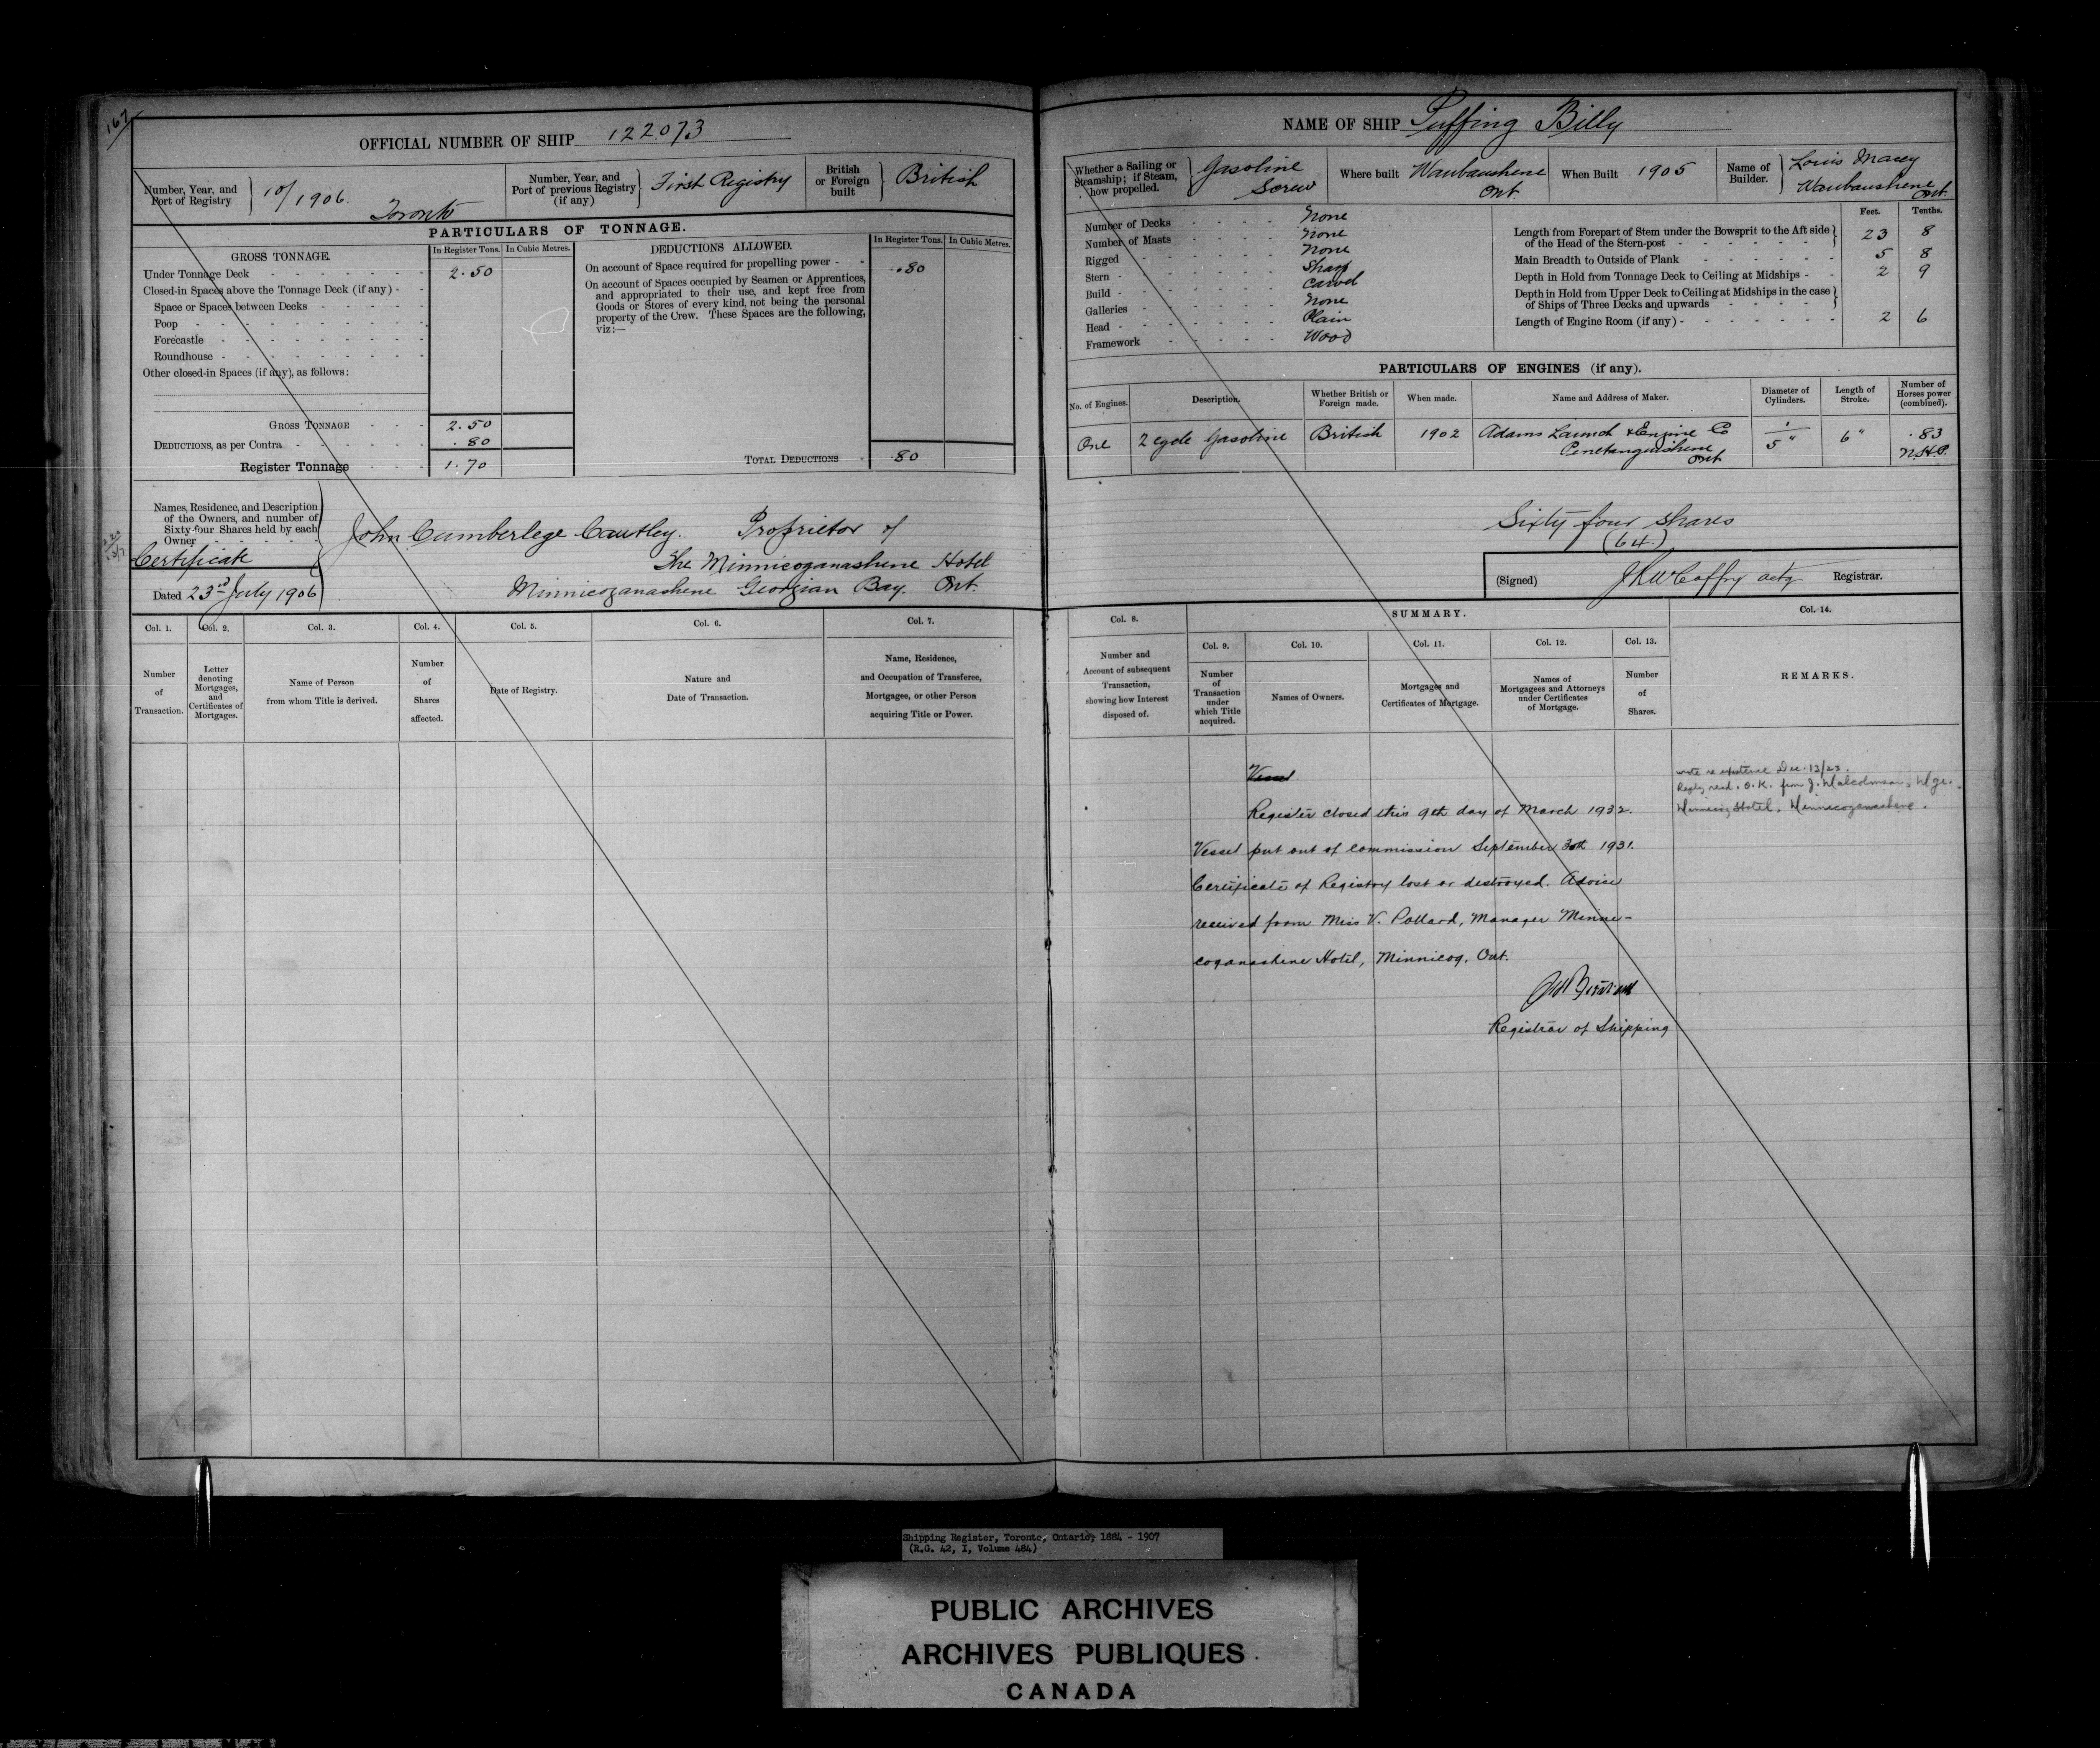 167
OFFICIAL NUMBER OF SHIP 122073
Number, Year, and Port of Registry
10/1906. Toronto
Number, Year, and Port of previous Registry (if any)
First Registry
British or Foreign built
British
PARTICULARS OF TONNAGE.
GROSS TONNAGE.
In Register Tons.
In Cubic Metres.
Under Tonnage Deck 2.50
Closed-in Spaces above the Tonnage Deck (if any)
Space or Spaces between Decks
Poop
Forecastle
Roundhouse
Other closed-in Spaces (if any), as follows:
GROSS TONNAGE 2.50
DEDUCTIONS, as per Contra .80
Register Tonnage 1.70
DEDUCTIONS ALLOWED.
In Register Tons.
In Cubic Metres.
On account of Space required for propelling power .80
On account of Spaces occupied by Seamen or Apprentices,
and appropriated to their use, and kept free from
Goods or Stores of every kind, not being the personal
property of the Crew. These Spaces are the following,
viz:—
TOTAL DEDUCTIONS .80
Names, Residence, and Description
of the Owners, and number of
Sixty-four Shares held by each
Owner
Certificate
Dated 23rd July 1906
John Cumberlege Cautley. Proprietor of
The Minnicoganashene Hotel
Minnicoganashene Georgian Bay. Ont.
Col. 1.
Number of Transaction.
Col. 2.
Letter denoting Mortgages, and Certificates of Mortgages.
Col. 3.
Name of Person from whom Title is derived.
Col. 4.
Number of Shares affected.
Col. 5.
Date of Registry.
Col. 6.
Nature and Date of Transaction.
Col. 7.
Name, Residence, and Occupation of Transferee, Mortgagee, or other Person acquiring Title or Power.
NAME OF SHIP Puffing Billy
Whether a Sailing or Steamship; if Steam, how propelled.
Gasoline Screw
Where built
Waubaushene Ont.
When Built 1905
Name of Builder.
Louis Macey
Waubaushene Ont.
Number of Decks None
Number of Masts None
Rigged None
Stern Sharp
Build Carvel
Galleries None
Head Plain
Framework Wood
Feet. Tenths.
Length from Forepart of Stem under the Bowsprit to the Aft side
of the Head of the Stern-post 23 8
Main Breadth to Outside of Plank 5 8
Depth in Hold from Tonnage Deck to Ceiling at Midships 2 9
Depth in Hold from Upper Deck to Ceiling at Midships in the case
of Ships of Three Decks and upwards
Length of Engine Room (if any) 2 6
PARTICULARS OF ENGINES (if any).
No. of Engines.
Description.
Whether British or Foreign made.
When made.
Name and Address of Maker.
Diameter of Cylinders.
Length of Stroke.
Number of Horses power (combined).
One
2 cycle Gasoline
British
1902
Adams Launch & Engine Co
Penetanguishene
Ont
1
5"
6"
.83
N.H.P.
Sixty four shares
(64)
(Signed) Registrar.
Col. 8.
Number and Account of subsequent Transaction, showing how Interest disposed of.
SUMMARY.
Col. 9.
Number of Transaction under which Title acquired.
Col. 10.
Names of Owners.
Col. 11.
Mortgages and Certificates of Mortgage.
Col. 12.
Names of Mortgagees and Attorneys under Certificates of Mortgage.
Col. 13.
Number of Shares.
Col. 14.
REMARKS.
Vessel
Register closed this 9th day of March 1932.
Vessel put out of commission September 30th 1931.
Certificate of Registry lost or destroyed. Advice
received from Miss V. Pollard, Manager Minne-
coganashene Hotel, Minnicog, Ont.
Registrar of Shipping
wrote re existence Dec. 13/23.
Reply recd. O.K. from J. Malcolmson, Mgr.
Minnicog Hotel, Minnicoganashene.
Shipping Register, Toronto, Ontario, 1884 - 1907
(R.G. 42, I, Volume 484)
PUBLIC ARCHIVES
ARCHIVES PUBLIQUES
CANADA